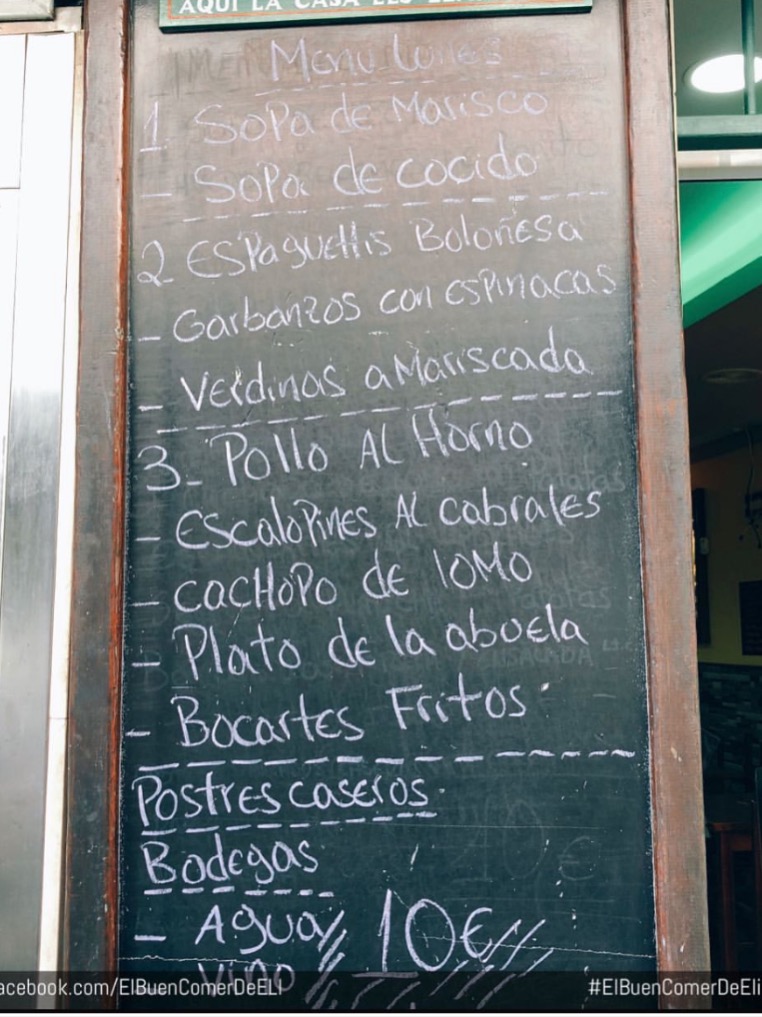 AQUI LA CASA
Menu lunes
1 Sopa de Marisco
- Sopa de cocido
2 Espaguettis Boloñesa
- Garbanzos con espinacas
- Verdinas a Mariscada
3- Pollo Al Horno
- Escalopines Al cabrales
- CACHOPO DE LOMO
- Plato de la abuela
- Bocartes Fritos
Postres caseros
Bodegas
- Agua 10€
vino
acebook.com/ElBuenComerDeELI #ElBuenComerDeEli